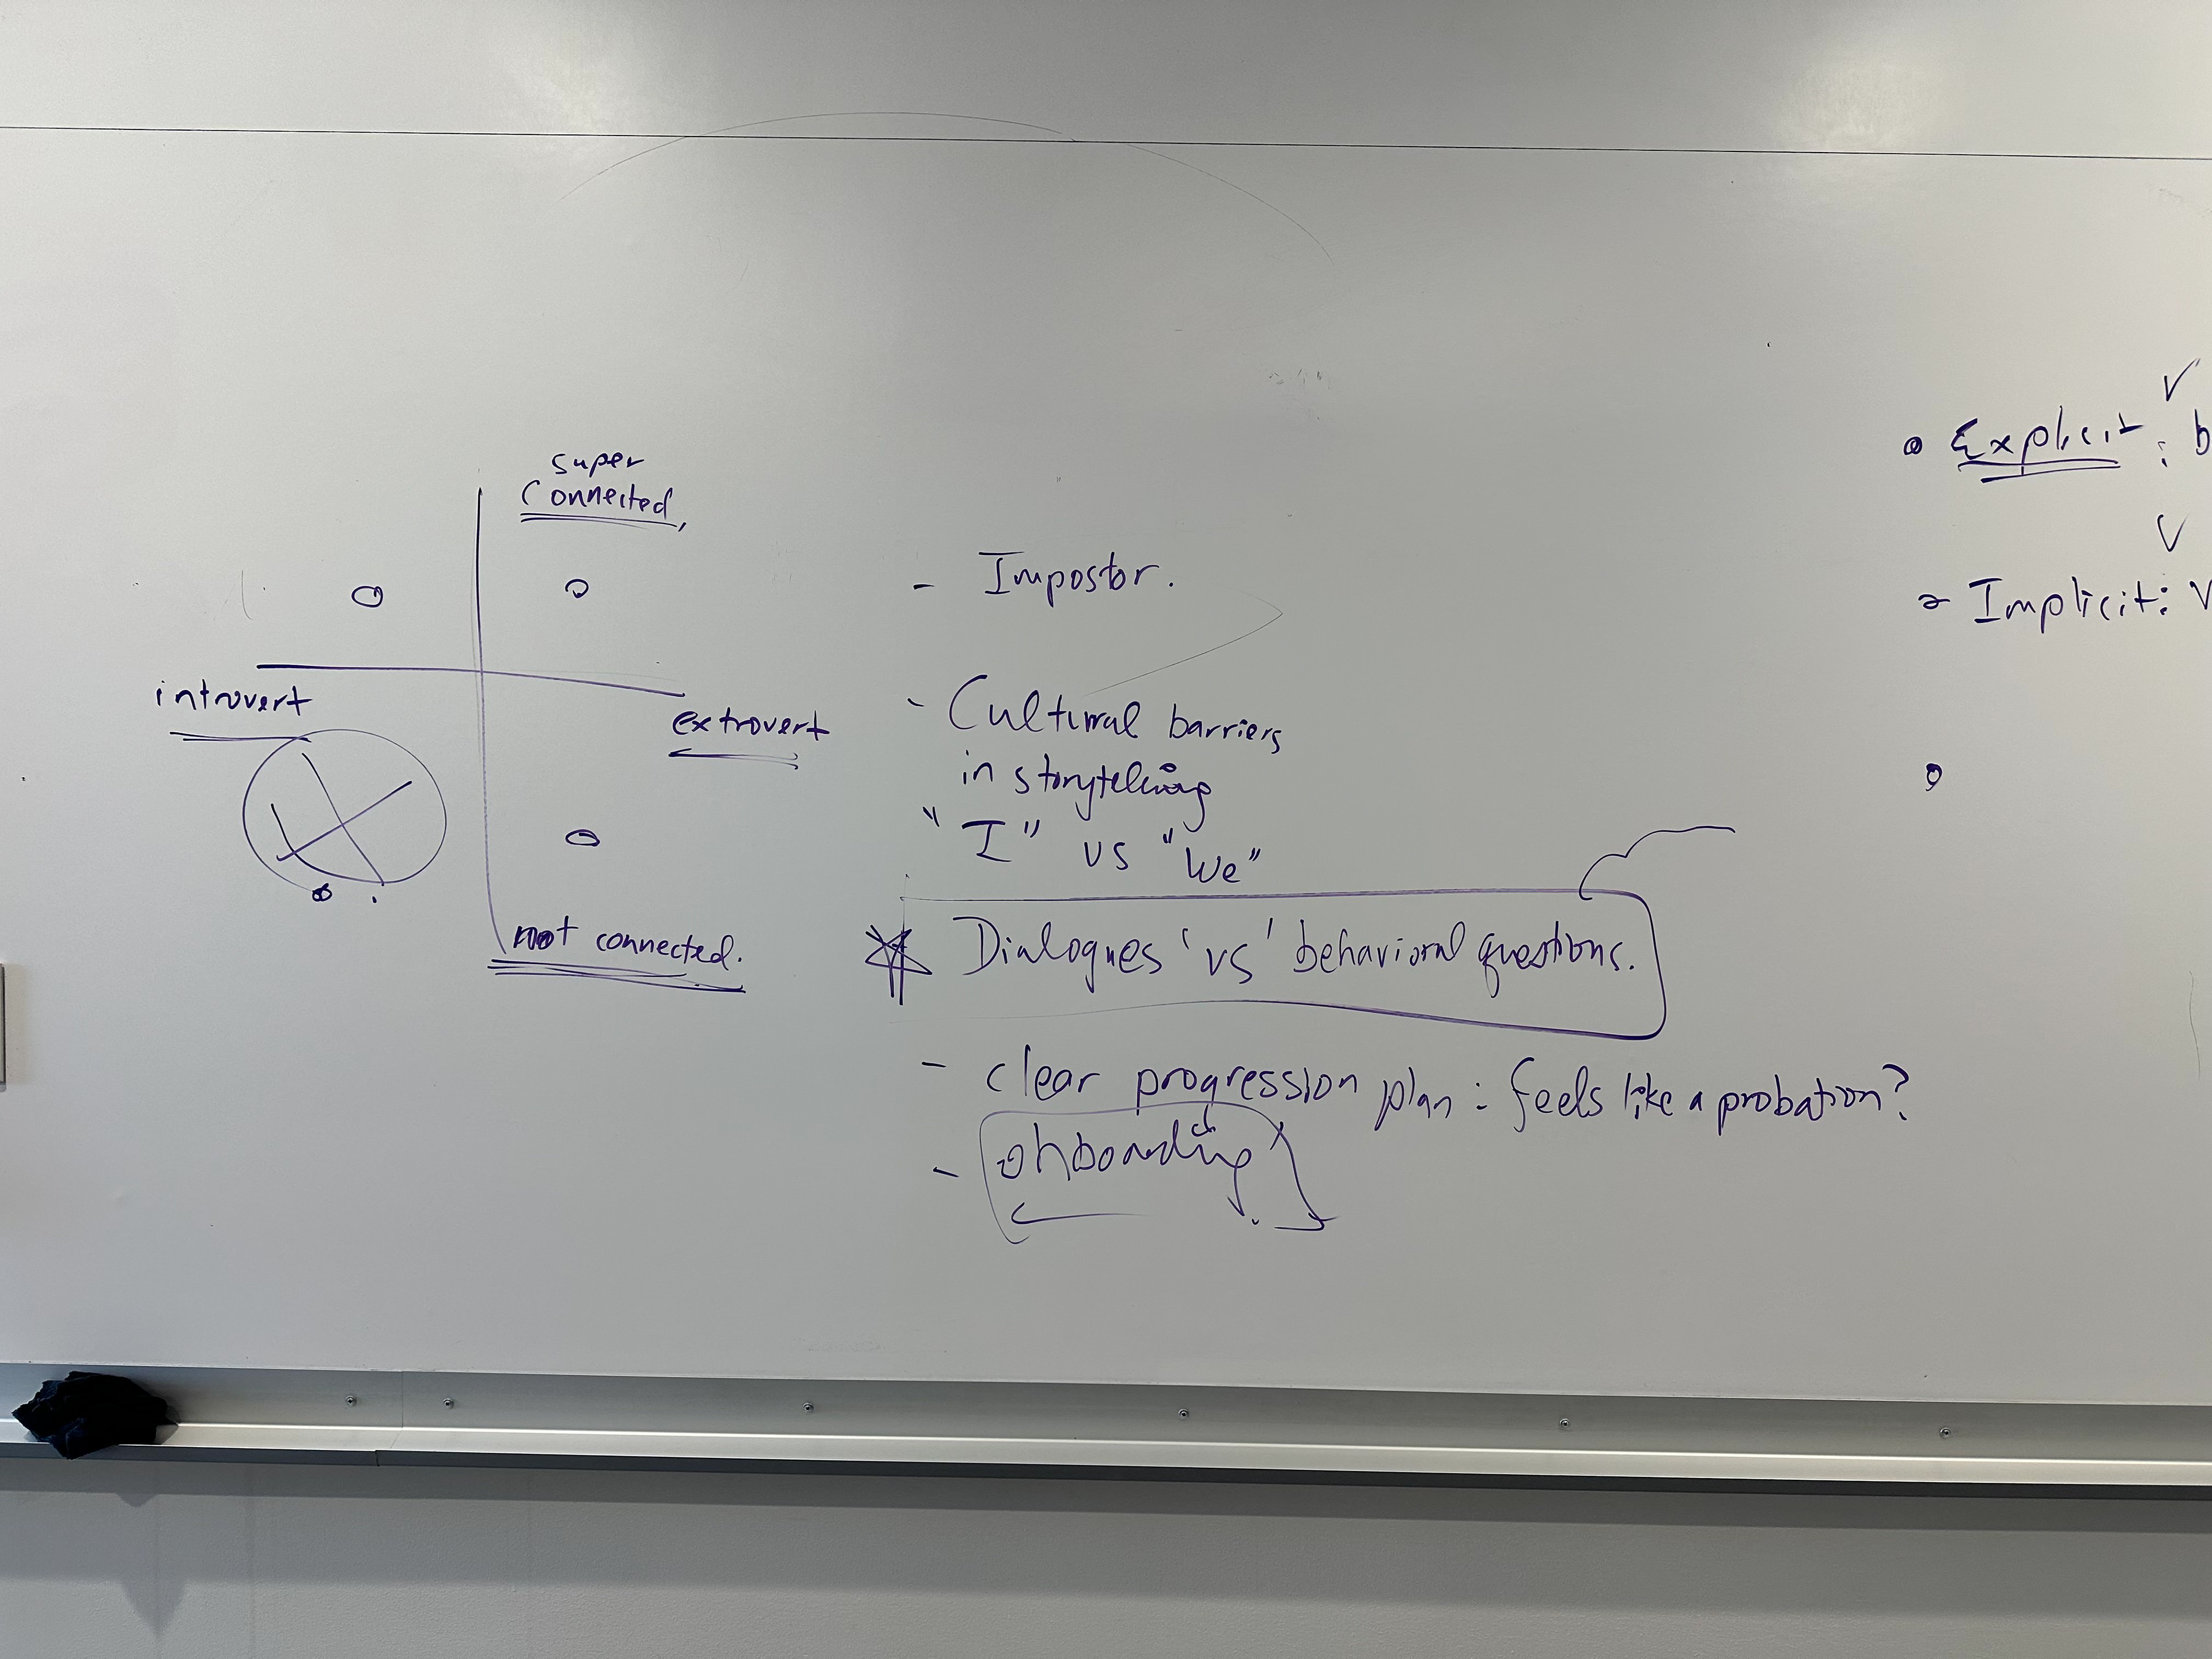 super
Connected,
introvert
extrovert
not connected.
- Impostor.
- Cultural barriers
in storytelling
"I" vs "We"
Dialogues 'vs' behavioral questions.
- clear progression plan : feels like a probation?
- onboarding
Explicit : b
Implicit: V